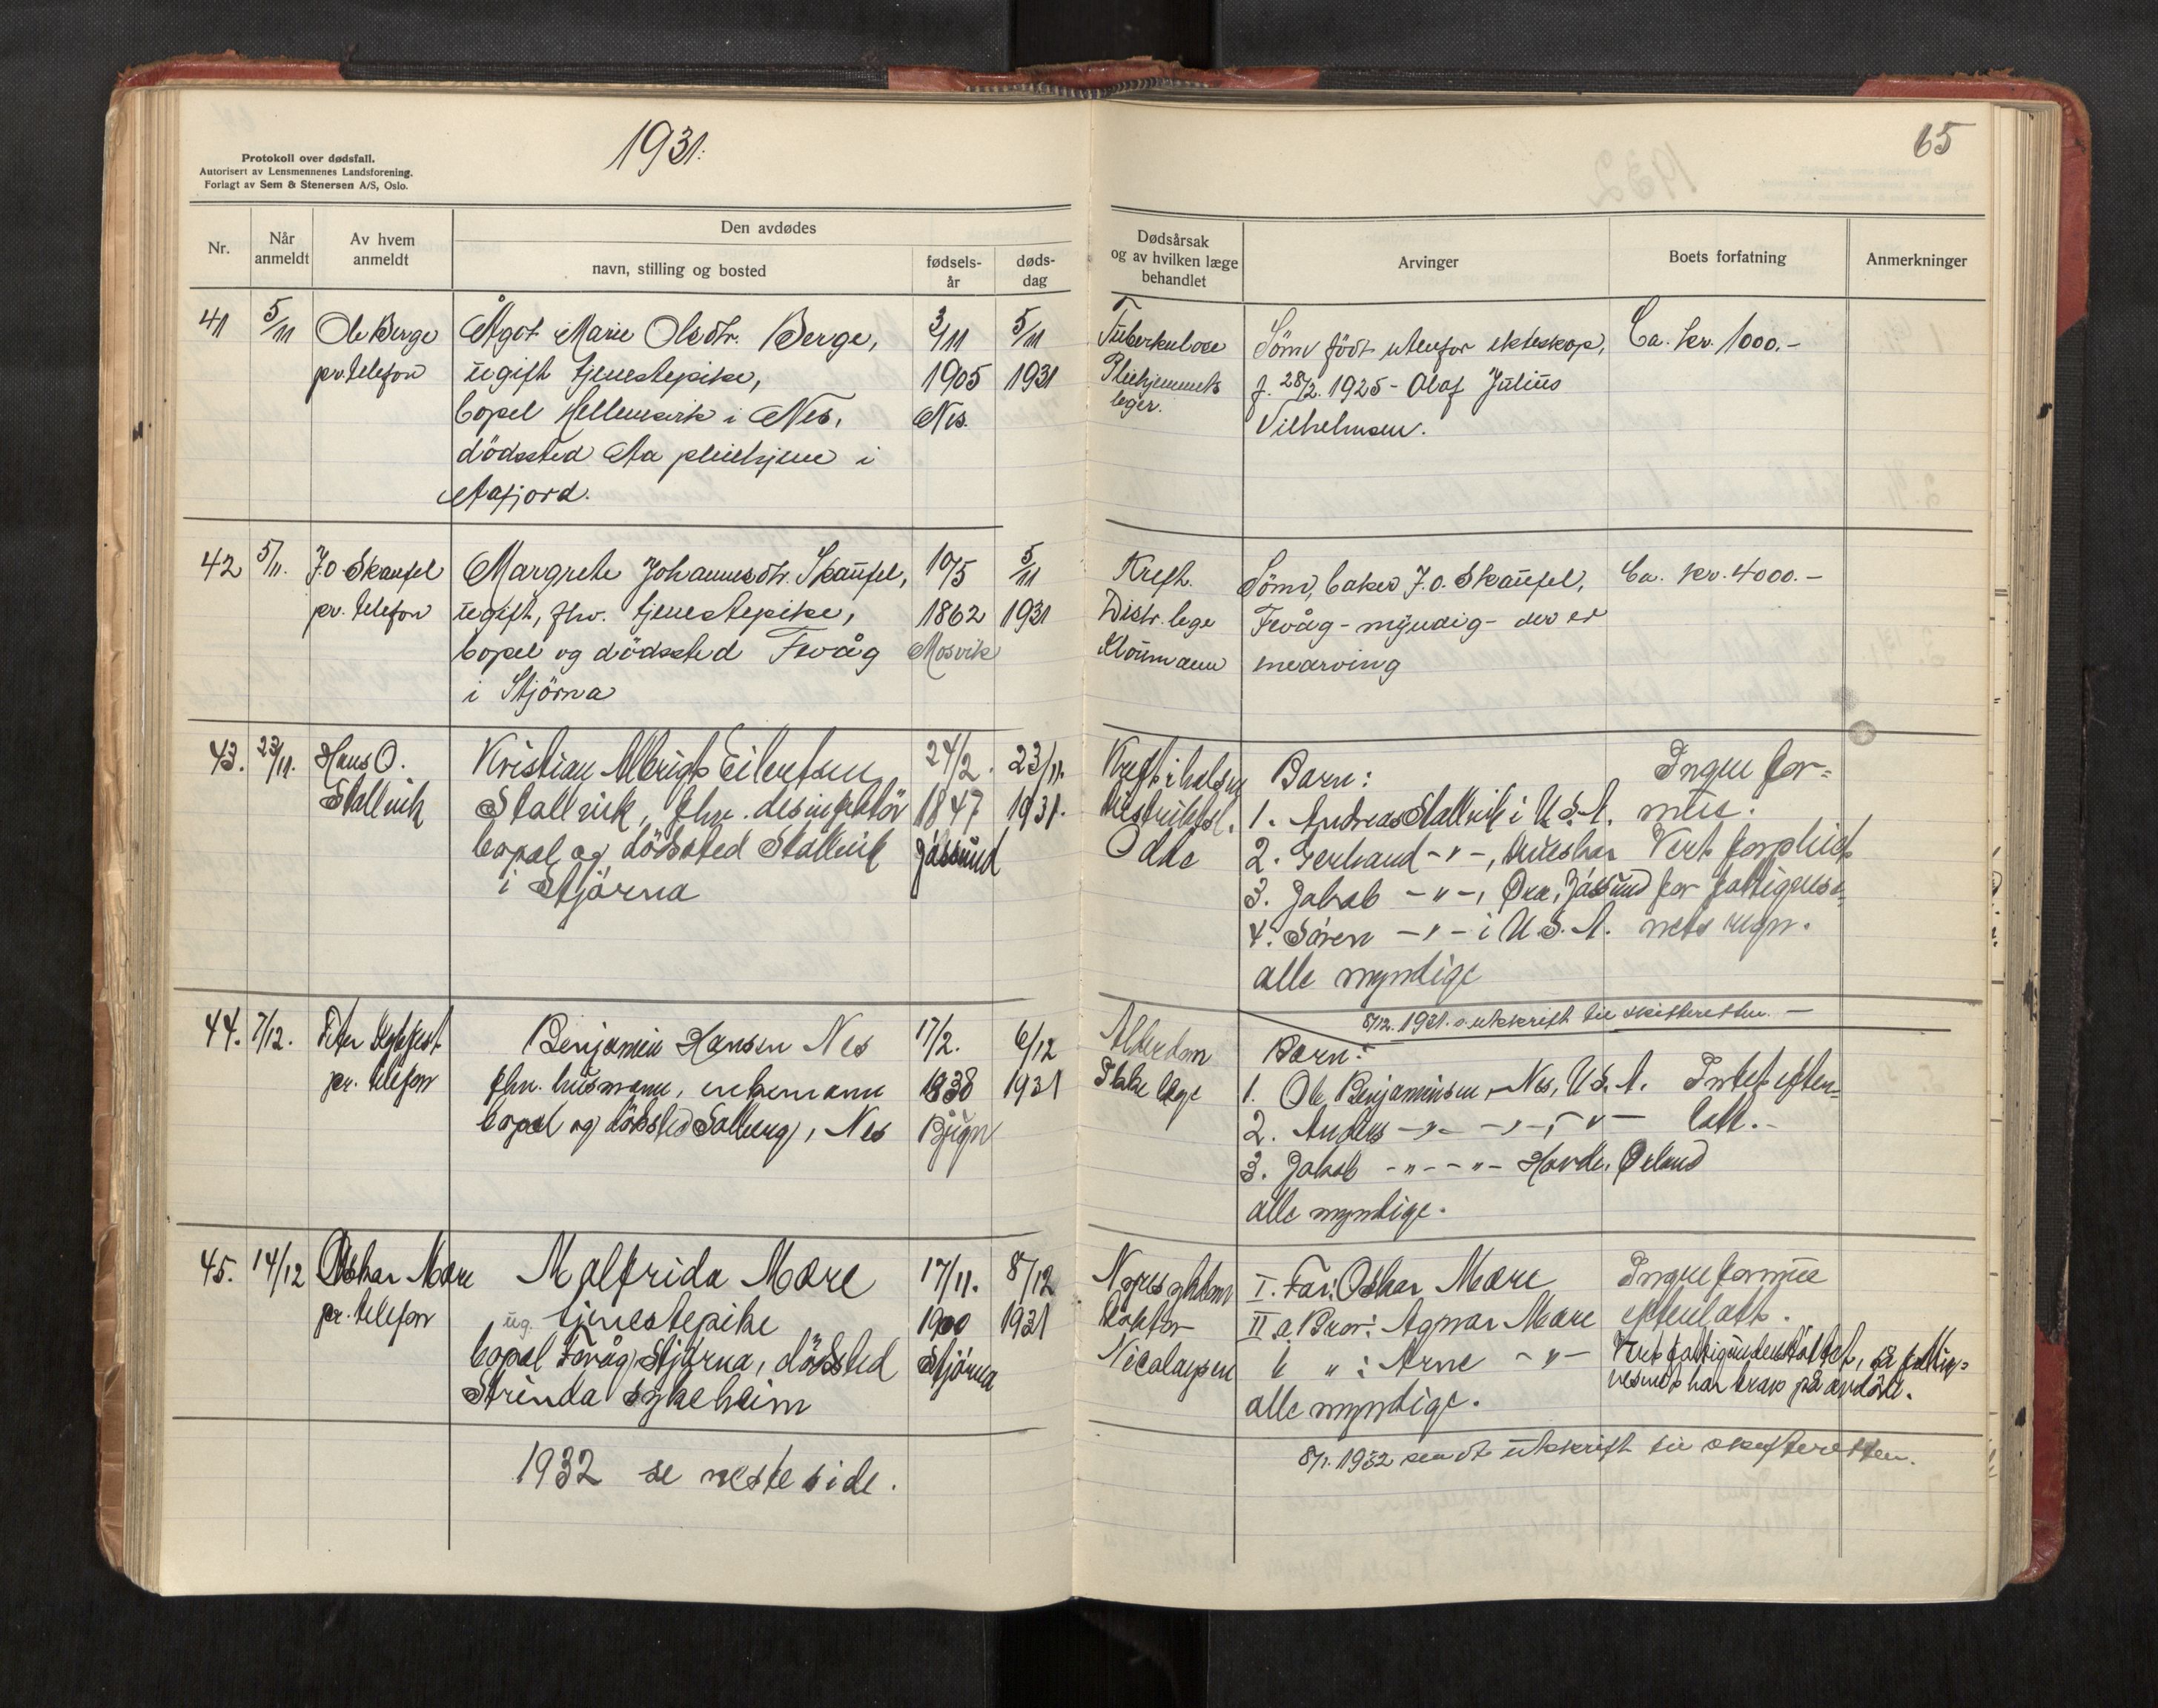 Protokoll over dødsfall.
Autorisert av Lensmennenes Landsforening.
Forlagt av Sem & Stenersen A/S, Oslo.
1931.
65
Nr.
Når anmeldt
Av hvem anmeldt
Den avdødes
navn, stilling og bosted
fødsels-år
døds-dag
Dødsårsak
og av hvilken læge
behandlet
Arvinger
Boets forfatning
Anmerkninger
41 5/11 Ole Berge Ågot Marie Olsdtr. Berge, 3/11 5/11
pr. telefon ugift tjenestepike, 1905 1931
bopel Hellemsvik i Nes, Nes.
dödssted Aa pleiehjem i
Aafjord.
Tuberkulose Sönn född utenfor ekteskap, Ca. kr. 1000.-
Pleiehjemmets f. 28/2. 1925 - Olaf Julius
leger. Vilhelmsen.
42 5/11. J.O. Skaufel Margrete Johannesdtr. Skaufel, 10/5 5/11
pr. telefon ugift, fhv. tjenestepike, 1862 1931
bopel og dödssted Fevåg Mosvik
i Stjörna
Kreft. Sönn, baker J.O. Skaufel, Ca. kr. 4000.-
Distr. lege Fevåg - myndig - der er
enearving
43. 23/11. Hans O. Kristian Albrigt Eilertsen 24/2. 23/11.
Stallvik Stallvik, fhv. desinfektör 1847 1931.
bopel og dödssted Stallvik Jössund
i Stjörna
Kreft i halsen Barn: Ingen for-
Distriktsl. 1. Andreas Stallvik i U.S.A. mue.
Odde 2. Gerhard -"-, Vert forpleiet
3. Jakob -"-, Jössund for fattigvese-
4. Sören -"- i U.S.A. nets regn.
alle myndige
8/12. 1931. utskrift til skifteretten. -
44. 7/12. Peter Benjamin Hansen Nes 17/2. 6/12
pr. telefon fhv. husmann, enkemann 1838 1931
bopel og dödssted Solberg, Nes Bjugn
Alderdom Barn:
lege 1. Ole Benjaminsen Nes, U.S.A. Intet efter-
2. Anders -"- -"-, -"- latt.-
3. Jakob -"- -"- Hovde, Ørland
alle myndige.
45. 14/12 Oskar Mære Malfrida Mære 17/11. 8/12
pr. telefon ug. tjenestepike 1900 1931
bopel Fevåg, Stjörna, dödssted Stjörna
Strinda sykeheim
Nyresykdom I. Far: Oskar Mære Ingen formue
Doktor II a Bror: Agnar Mære efterlatt.
Nicolaysen b " : Arne -"- Vert fattigunderstöttet, så fattig-
vesenet har krav på avdöde.
alle myndige.
8/1. 1932 sendt utskrift til skifteretten.
1932 se neste side.